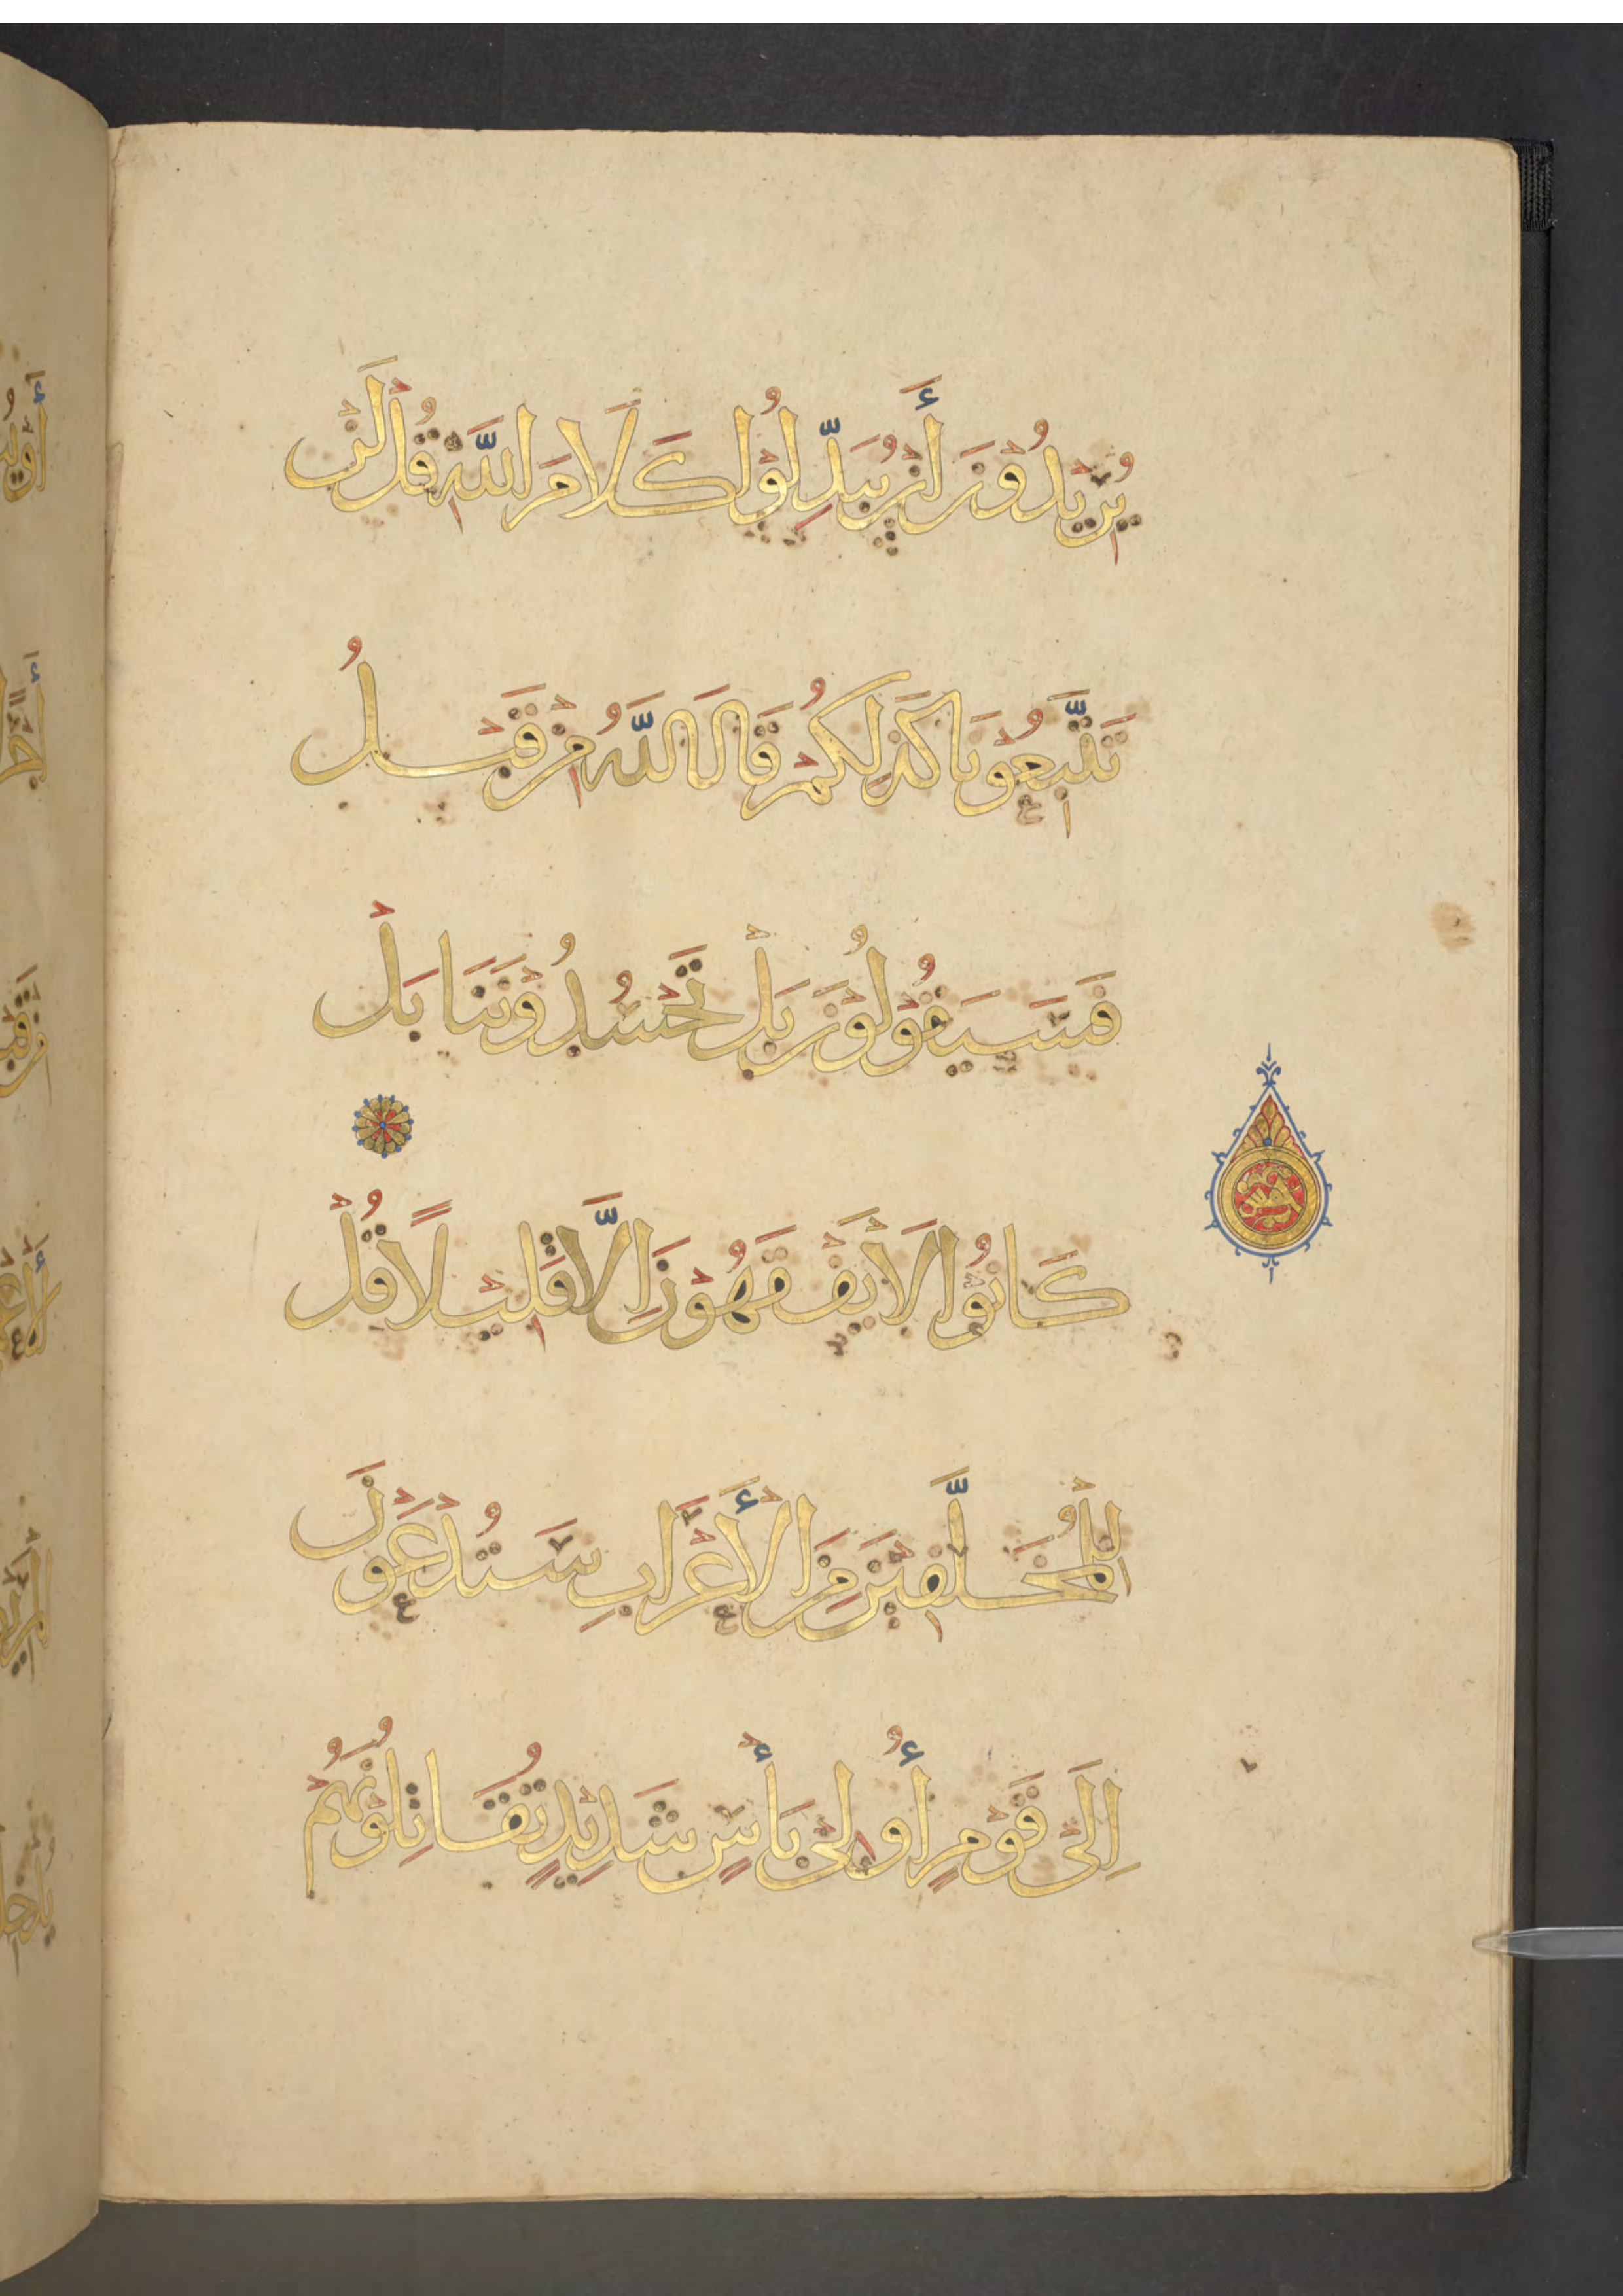 يُرِيْدُوْنَ أَنْ يُبَدِّلُوْا كَلَامَ اللَّهِ قُلْ لَنْ
تَتَّبِعُوْنَا كَذَلِكُمْ قَالَ اللَّهُ مِنْ قَبْلُ
فَسَيَقُوْلُوْنَ بَلْ تَحْسُدُوْنَنَا بَلْ
كَانُوْا لَا يَفْقَهُوْنَ اِلَّا قَلِيْلًا قُلْ
لِلْمُخَلَّفِيْنَ مِنَ الْأَعْرَابِ سَتُدْعَوْنَ
اِلَى قَوْمٍ أُولِيْ بَأْسٍ شَدِيْدٍ تُقَاتِلُوْنَهُمْ